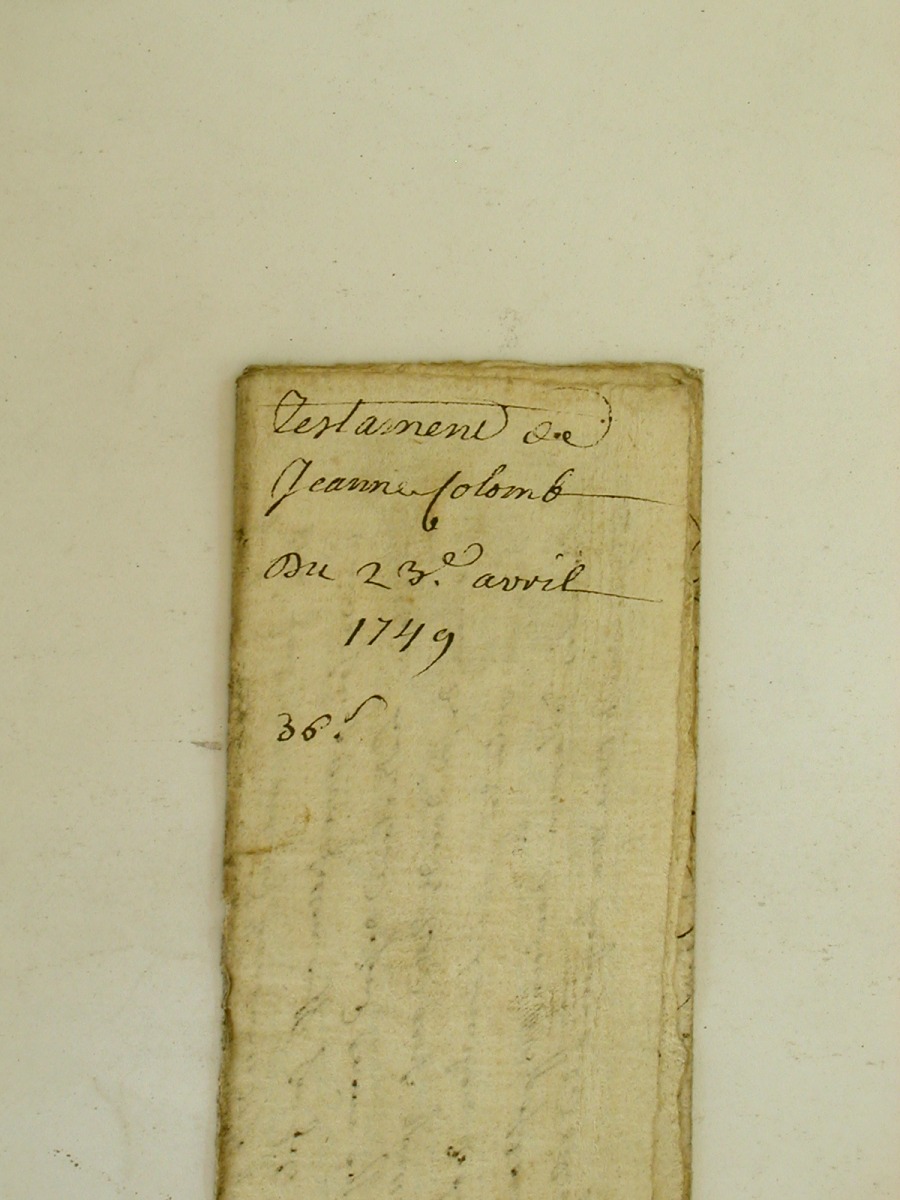 Testament de
Jeanne Colomb
Du 23.e avril
1749
36.s